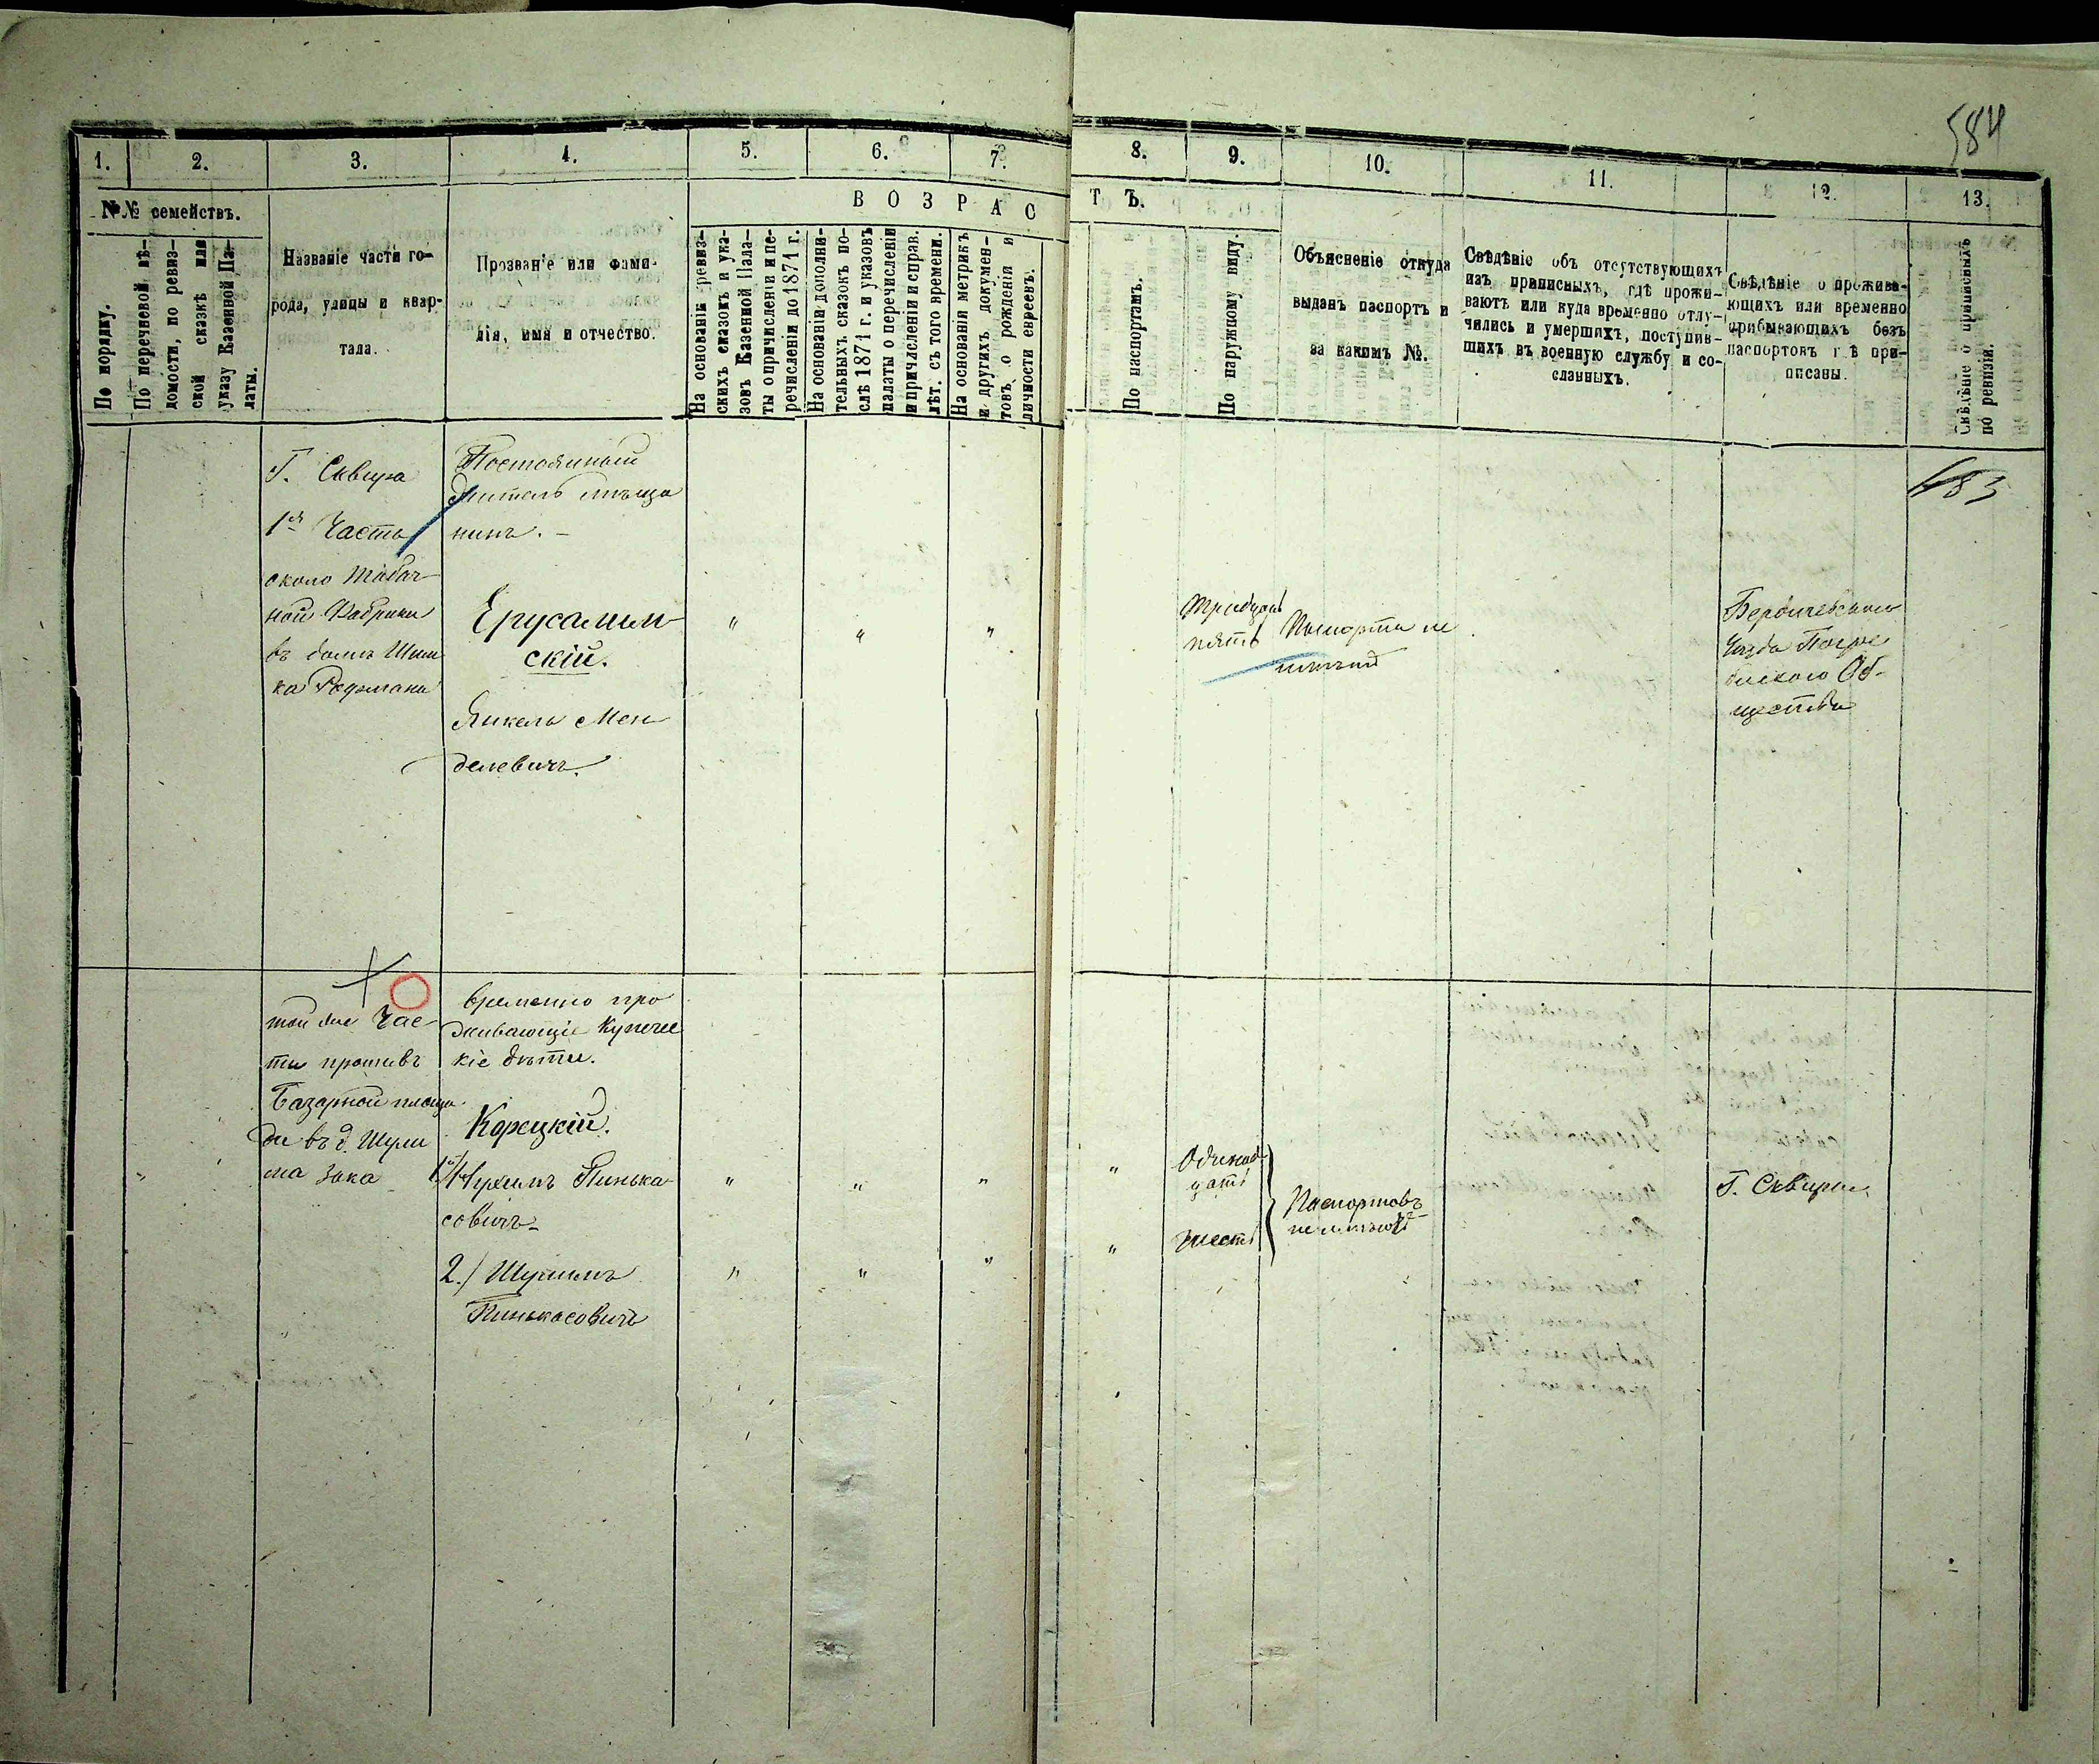 584
1.
2.
3.
4.
5.
6.
7.
8.
9.
10.
11.
12.
13.
№№ семействъ.
ВОЗРАС
ТЪ.
По порядку.
По перечневой вѣ-
домости, по ревиз-
ской сказкѣ или
указу Казенной Па-
латы.
Названіе части го-
рода, улицы и квар-
тала.
Прозваніе или фами-
лія, имя и отчество.
На основаніи ревиз-
скихъ сказокъ и ука-
зовъ Казенной Пала-
ты о причисленіи и пе-
речисленіи до 1871 г.
На основаніи дополни-
тельныхъ сказокъ по-
слѣ 1871 г. и указовъ
палаты о перечисленіи
и причисленіи и справ.
лѣт. съ того времени.
На основаніи метрикъ
и другихъ докумен-
товъ о рожденіи и
личности евреевъ.
По паспортамъ.
По наружному виду.
Объясненіе откуда
выданъ паспортъ и
за какимъ №.
Свѣдѣніе объ отсутствующихъ
изъ приписныхъ, гдѣ прожи-
ваютъ или куда временно отлу-
чились и умершихъ, поступив-
шихъ въ военную службу и со-
сланныхъ.
Свѣдѣніе о прожива-
ющихъ или временно
прибывающихъ безъ
паспортовъ гдѣ при-
писаны.
Свѣдѣніе о приписныхъ
по ревизіи.
Г. Сквира
1й Часть
около Табач-
ной Фабрики
въ домѣ
Постоянный
житель мѣща
нинъ. -
Ерусалим-
скій.
Янкель Мен
делевичъ.
" " "
Тридцать
пять
Паспорта не
имѣетъ
Бердичевскаго
Уѣзда Погре
бискаго Об-
щества
той же Час-
ти противъ
Базарной площа
ди въ д. Шули
ма Зака
Временно про
живающіе Купечес
кіе дѣти.
Корецкій.
1./ Нухимъ Пинька-
совичъ -
2./ Шулимъ
Пинькасовичъ
" " " " "
Одинад
цать
" " " "
Шесть
Паспортовъ
не имѣютъ
Г. Сквиры